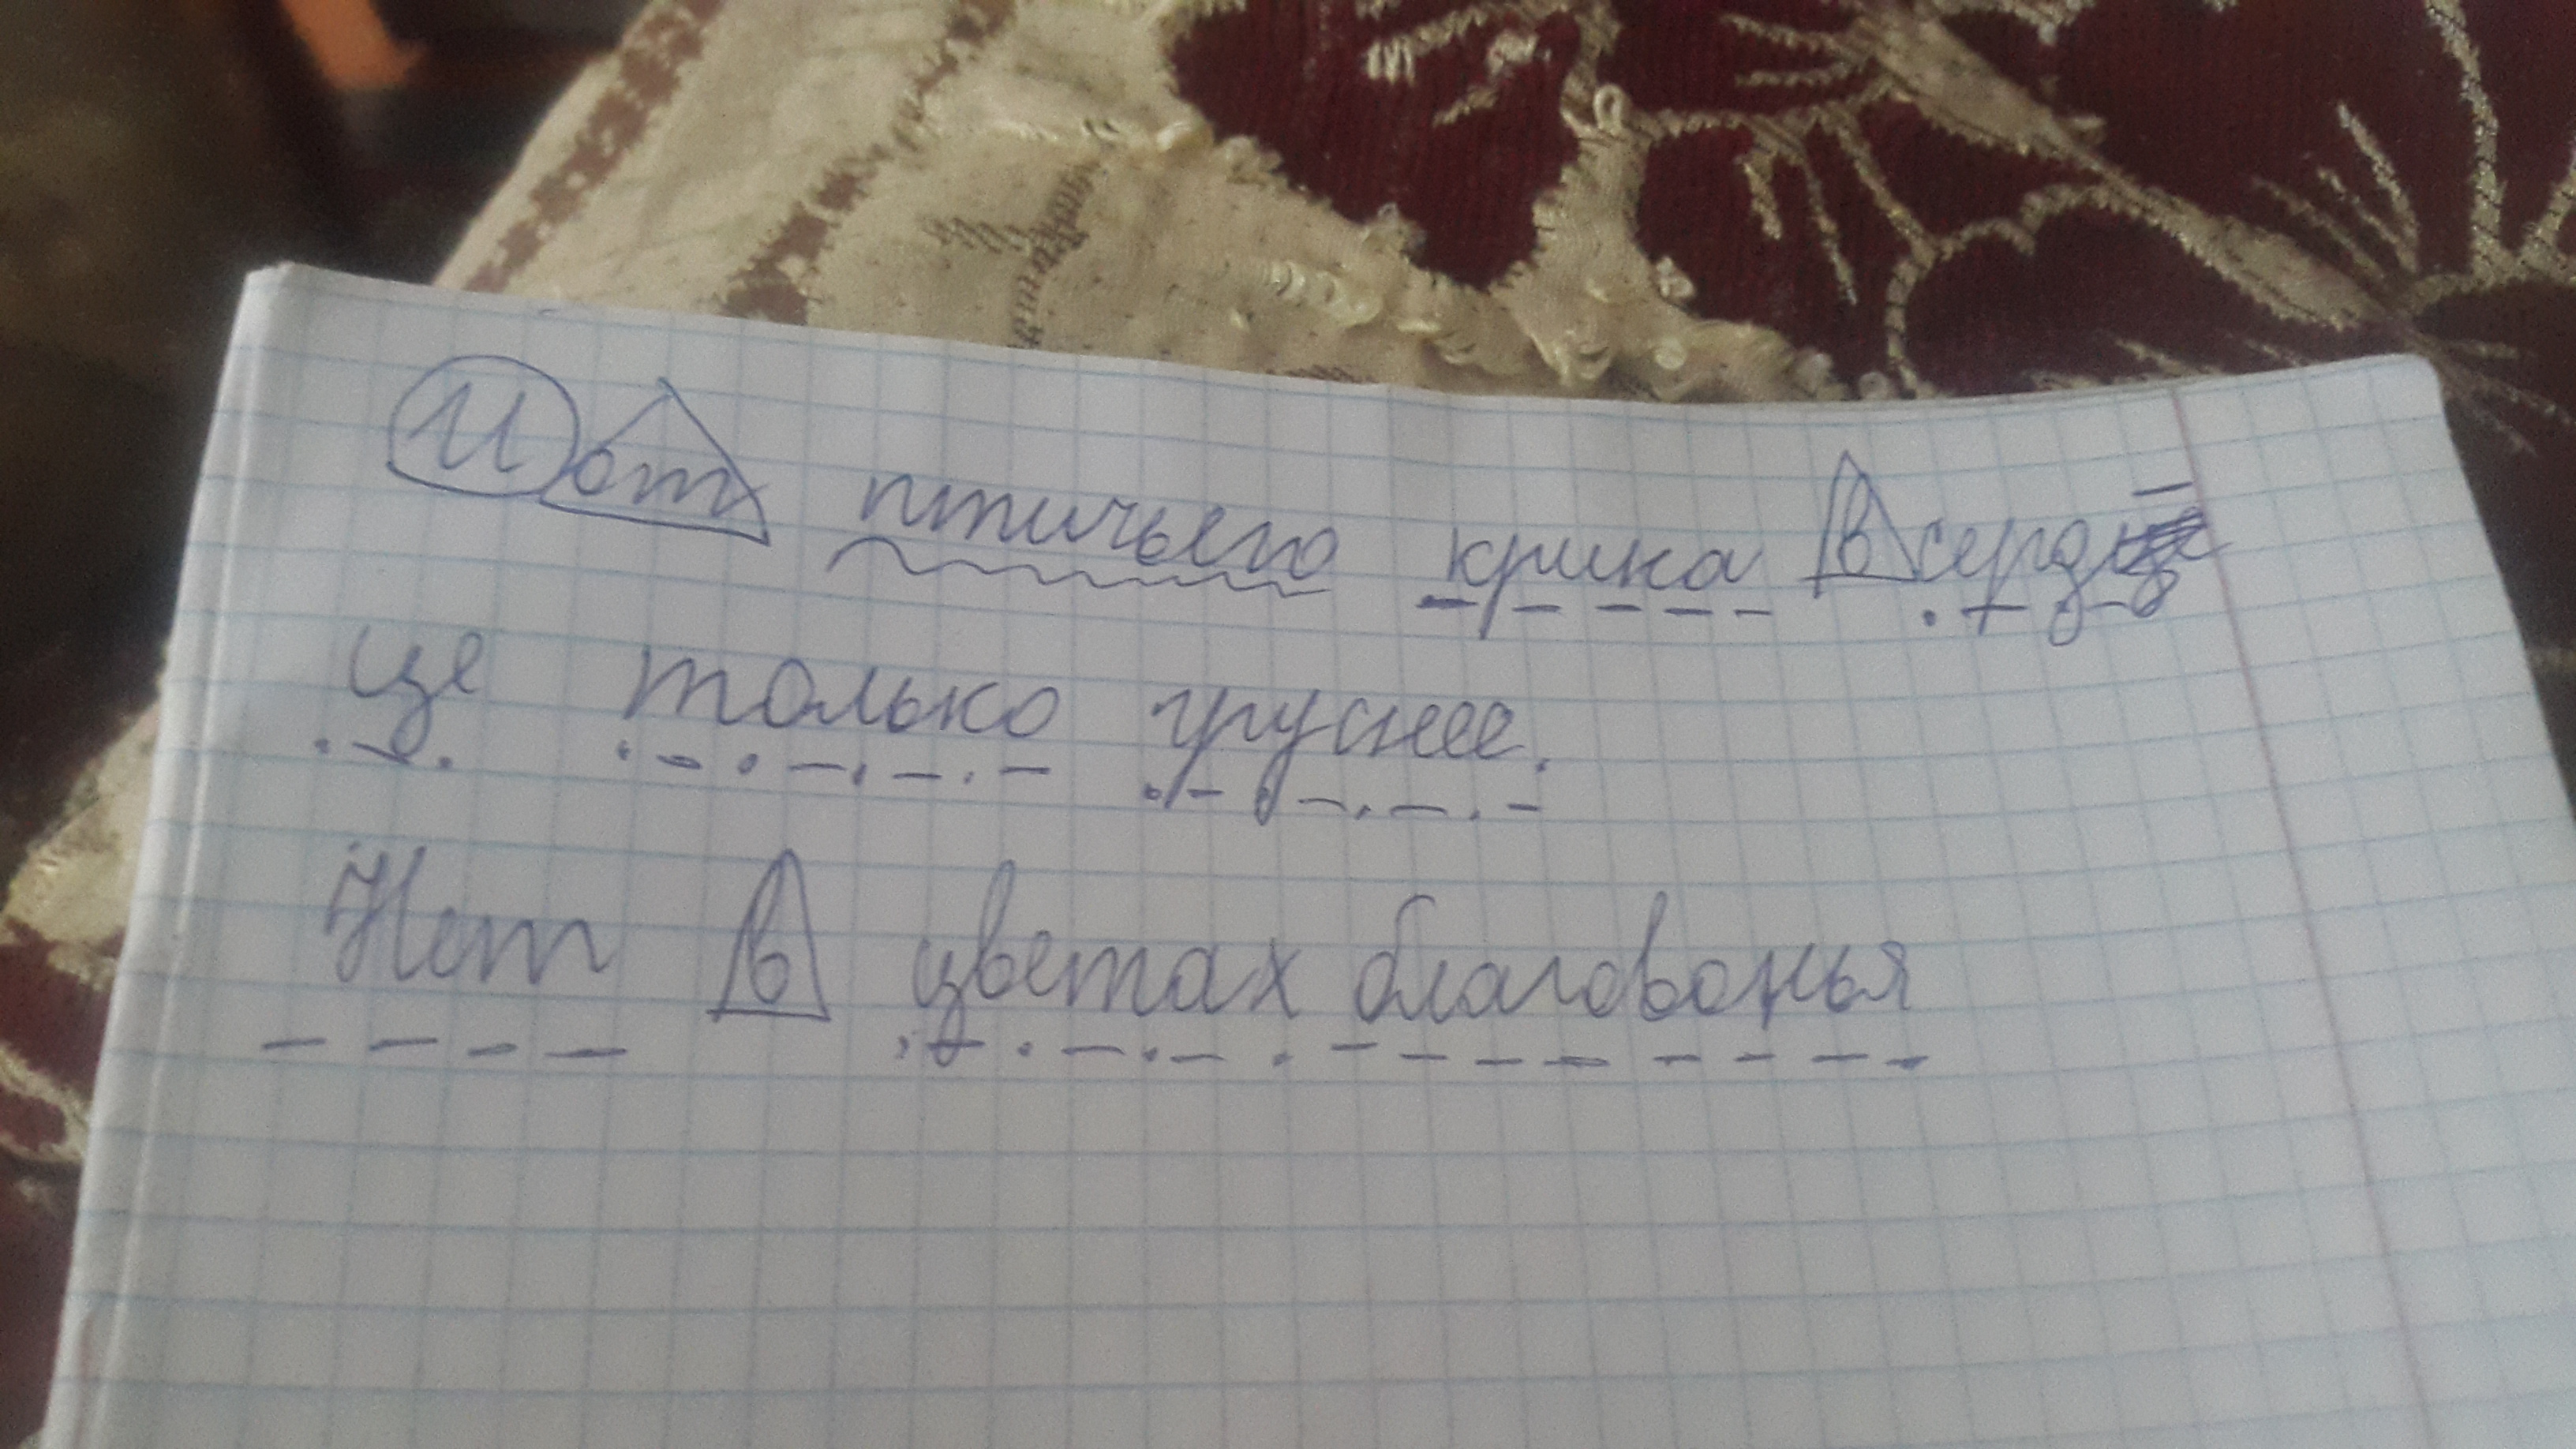 И от птичьего крика в серд-
це только груснее.
Нет в цветах благовонья